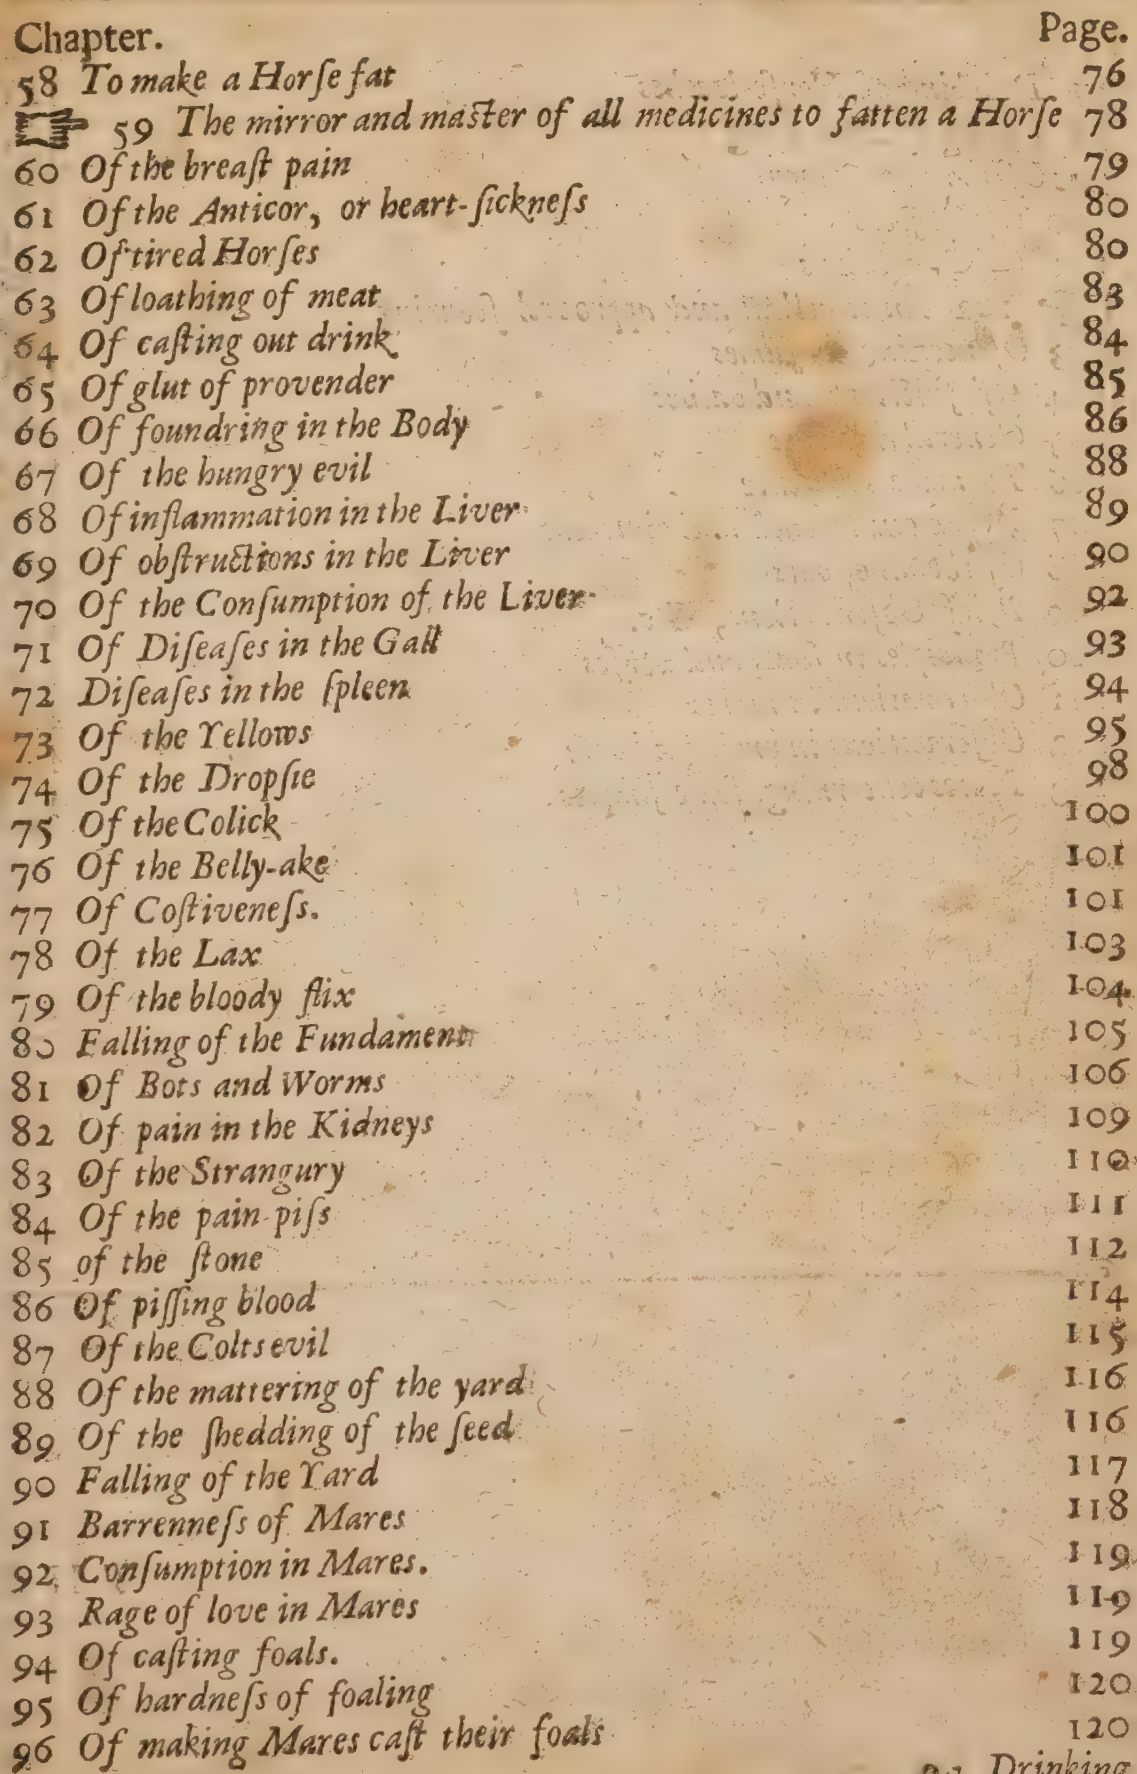 Chapter. Page.
58 To make a Horſe fat 76
59 The mirror and maſter of all medicines to fatten a Horſe 78
60 Of the breaſt pain 79
61 Of the Anticor, or heart-ſickneſs 80
62 Of tired Horſes 80
63 Of loathing of meat 83
64 Of caſting out drink 84
65 Of glut of provender 85
66 Of foundring in the Body 86
67 Of the hungry evil 88
68 Of inflammation in the Liver 89
69 Of obſtructions in the Liver 90
70 Of the Conſumption of the Liver 92
71 Of Diſeaſes in the Gall 93
72 Diſeaſes in the ſpleen 94
73 Of the Yellows 95
74 Of the Dropſie 98
75 Of the Colick 100
76 Of the Belly-ake 101
77 Of Coſtiveneſs. 101
78 Of the Lax 103
79 Of the bloody flix 104
80 Falling of the Fundament 105
81 Of Bots and Worms 106
82 Of pain in the Kidneys 109
83 Of the Strangury 110
84 Of the pain-piſs 111
85 of the ſtone 112
86 Of piſſing blood 114
87 Of the Colts evil 115
88 Of the mattering of the yard 116
89 Of the ſhedding of the ſeed 116
90 Falling of the Yard 117
91 Barrenneſs of Mares 118
92 Conſumption in Mares. 119
93 Rage of love in Mares 119
94 Of caſting foals. 119
95 Of hardneſs of foaling 120
96 Of making Mares caſt their foals 120
Drinking